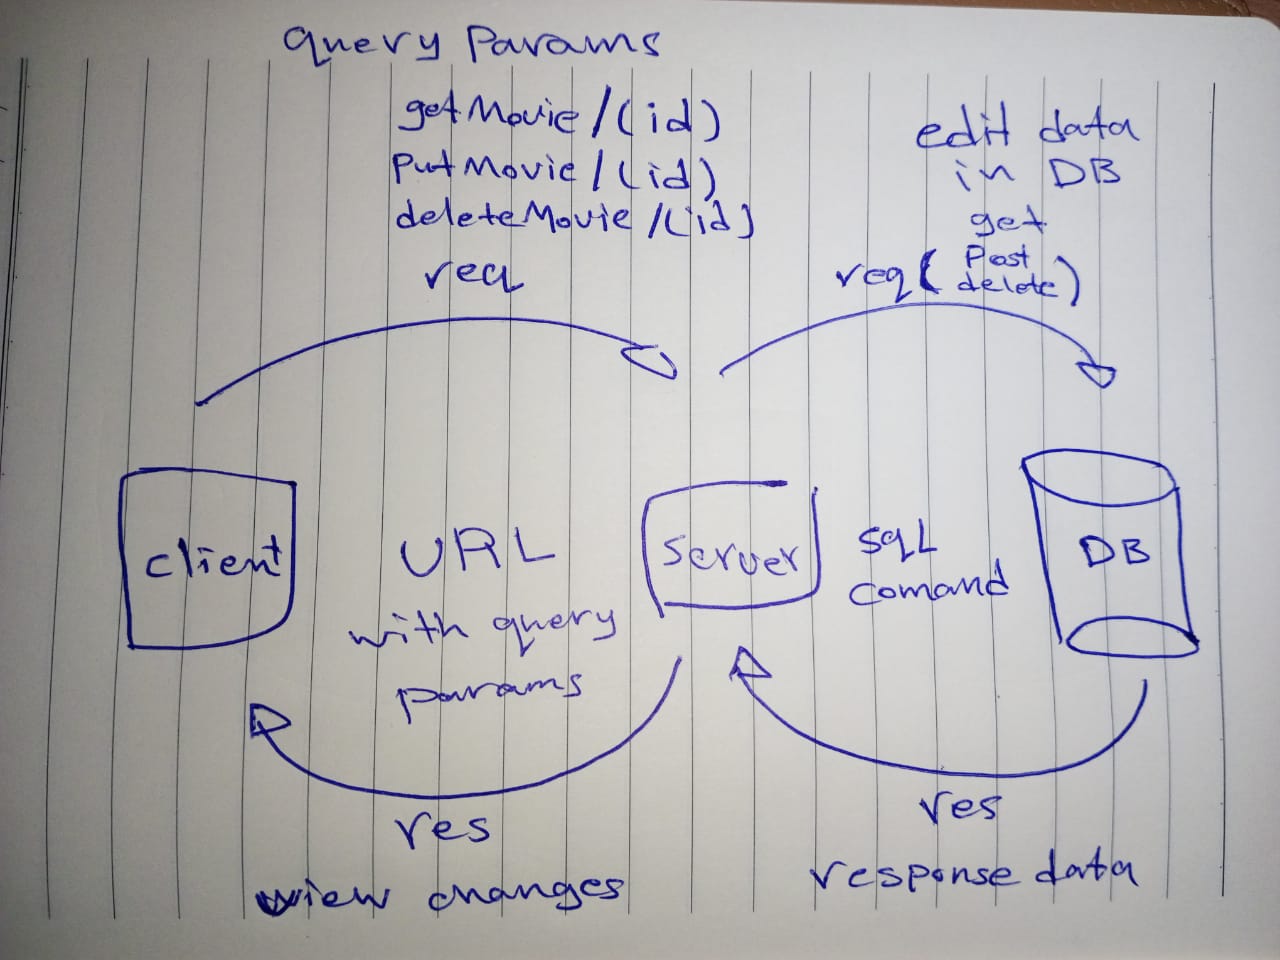 query Params
getMovie/(id)
PutMovie/(id)
deleteMovie/(id)
req
edit data
in DB
get
Post
req( delete)
client
URL
with query
params
server
SqL
comand
DB
res
view changes
res
response data